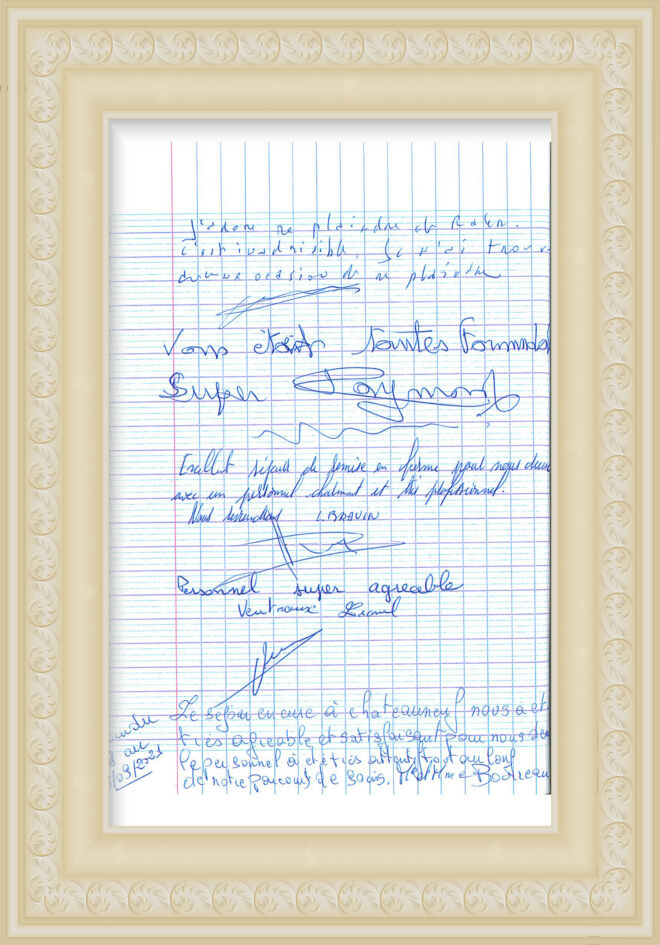 J'adore me plaindre et Raler.
c'est inadmissible. Je n'ai trouv
aucune occasion de me plaindre
Vous êtes toutes Formidab
Super Raymond
Excellent séjour de remise en forme pour nous deux
avec un personnel charmant et très professionnel.
Nous reviendrons L. BRAVIN
Personnel super agreable
Ventroux Lionel
Le sejour en cure à chateauneuf nous a et
très agreable et satisfaisant pour nous de
le personnel à été très attentif tout au long
de notre parcours de soins. Mr et Mme Boireau
du
au
/03/2021